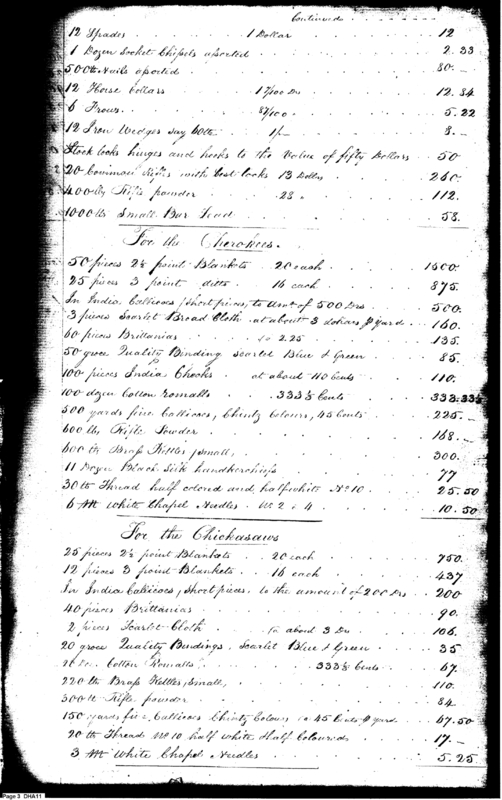 Continued
12 Spades 1 Dollar 12
1 Dozen Socket Chissels assorted 2.33
500 lb Nails assorted 80.
12 Horse Collars 12.84
6 Frows 87/100 5.22
12 Iron Wedges say 60 lb 1/- 8.
Stock locks hinges and hooks to the Value of fifty Dollars 50
20 Common Rifles with best locks 13 Dollrs 260.
400 lb Rifle powder 28 112.
1000 lb Small Bar Lead 58.
For the Cherokees.
50 pieces 2½ point Blankets 20 each
25 pieces 3 point ditto 16 each 875.
In India Callicoes, short pieces, to Amt of 500 Drs 500.
3 pieces Scarlet Broad Cloth at about 3 dollars p Yard 160.
60 pieces Brittanias to 2.25 135.
50 groce Quality Binding Scarlet Blue & Green 85.
100 pieces India Checks at about 110 Cents 110.
100 dozen Cotton Romalls 333⅓ Cents 333.33⅓
500 yards fine Callicoes, Chintz Colours, 45 Cents 225.
600 lbs Rifle Powder 168.
600 lb Brass Kettles, small, 300.
11 Dozen Black Silk handkerchiefs 77
30 lb Thread half colored and half white No 10 25.50
6 M White Chapel Needles No 2. 4 10.50
For the Chickasaws
25 pieces 2½ point Blankets 20 each 750.
12 pieces 3 point Blankets 16 each 437
In India Callicoes, Short pieces, to the amount of 200 Drs 200
40 pieces Brittanias 90.
2 pieces Scarlet Cloth to about 3 Drs 106.
20 groce Quality Bindings, Scarlet Blue & Green 35
Cotton Romalls 333⅓ Cents 67.
220 lb Brass Kettles, Small, 110.
300 lb Rifle powder 84.
150 yards fine Callicoes Chintz Colours 45 Cents p yard 67.50
20 lb Thread No 10 half white half Coloured 17.
3 M White Chapel Needles 5.25
Page 3 DHA11